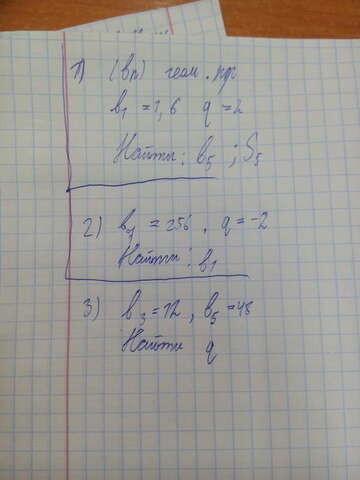 1) (bn) геом. пр
b1 = 1,6 q = 2
Найти: b5 ; S5
2) b9 = 256, q = -2
Найти: b1
3) b3 = 12, b5 = 48
Найти q